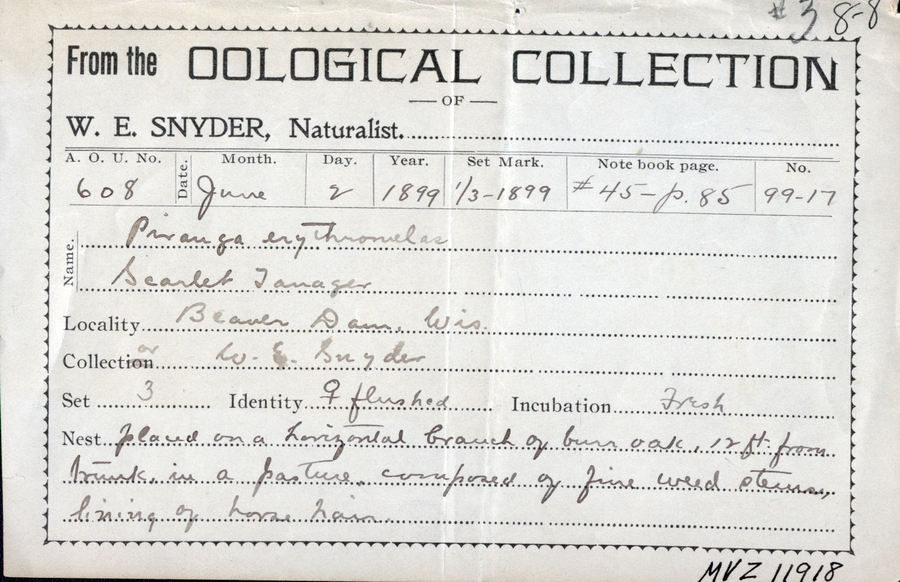 #3 8-8
From the OOLOGICAL COLLECTION
OF
W. E. SNYDER, Naturalist.
A. O. U. No. Date. Month. Day. Year. Set Mark. Note book page. No.
608 June 2 1899 1/3-1899 #45-p.85 99-17
Name. Piranga erythromelas
Scarlet Tanager
Locality Beaver Dam, Wis.
or
Collection W. E. Snyder
Set 3 Identity ♀ flushed Incubation Fresh
Nest placed on a horizontal branch of burr oak, 12 ft. from
trunk, in a pasture, composed of fine weed stems,
lining of horse hair.
MVZ 11918